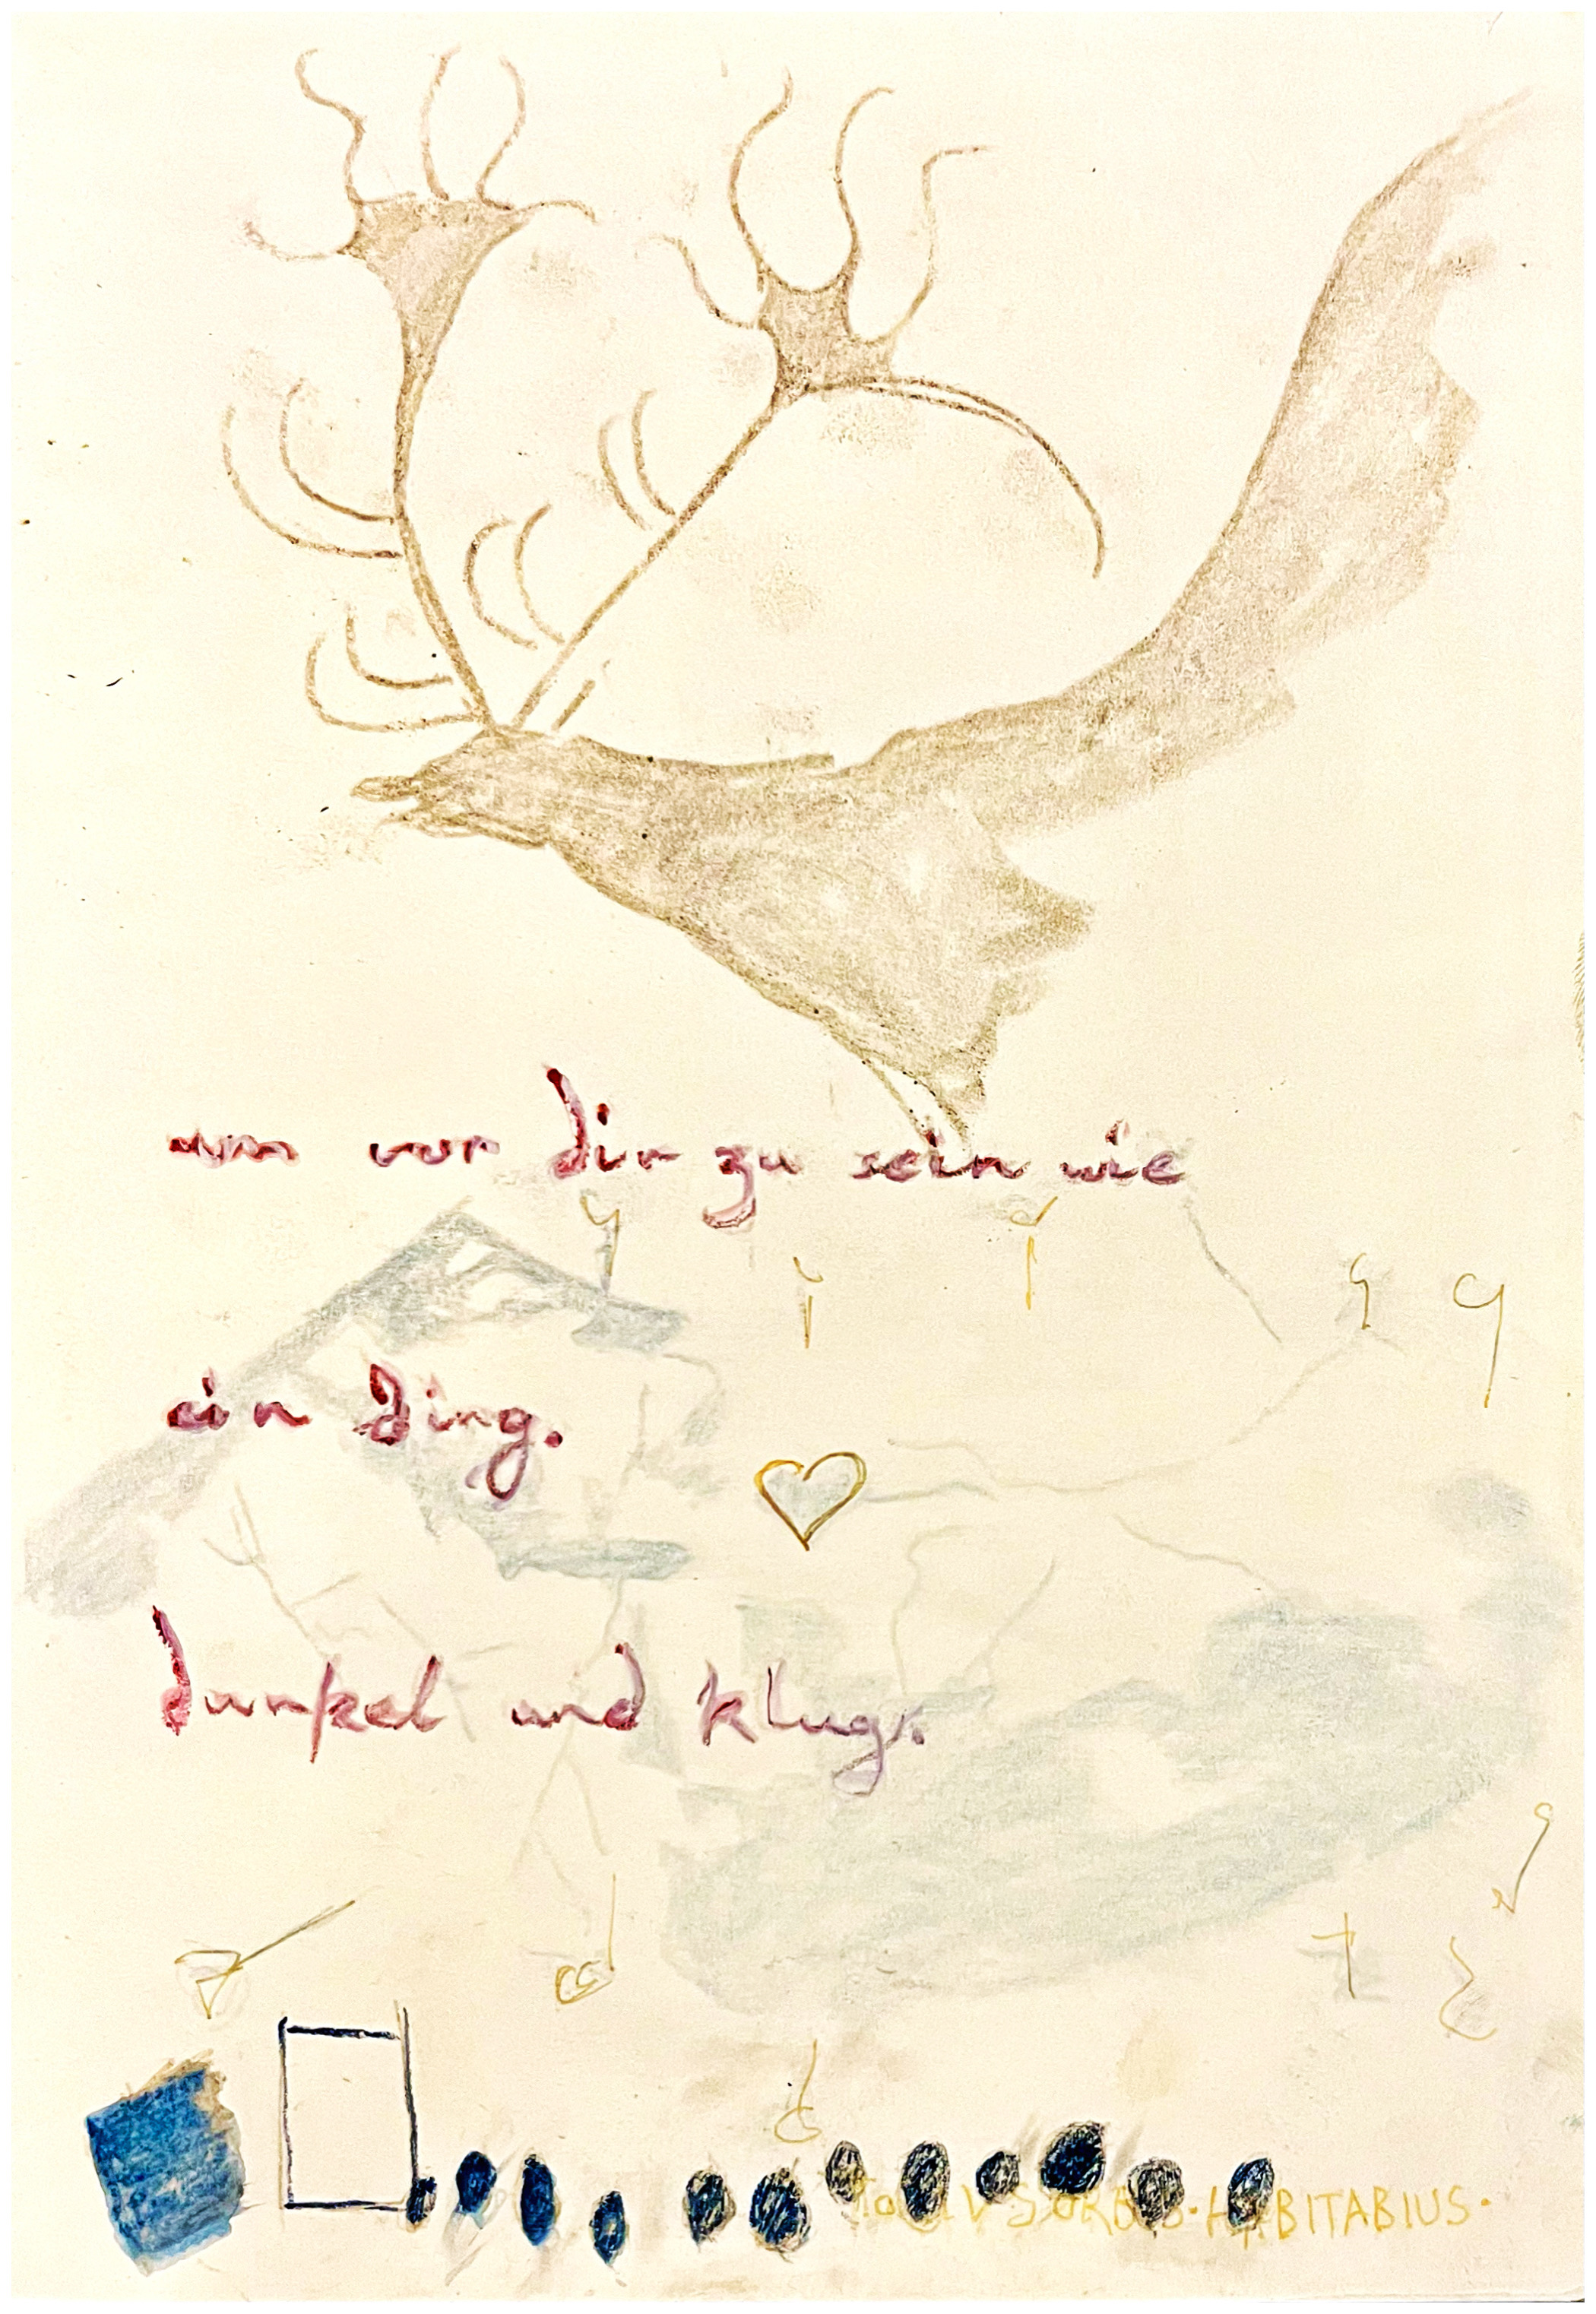 um vor dir zu sein wie
ein Ding.
dunkel und klug.
HABITABIUS.